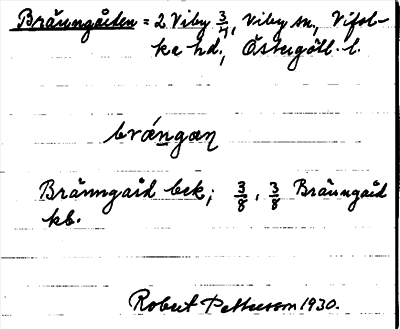 Bränngården = 2 Viby 3/4, Viby sn, Vifol-
ka hd, Östergötl. l.
brángan
Bränngård bek; 3/8, 3/8 Bränngård
kb.
Robert Pettersson 1930.